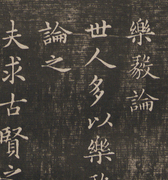 樂毅論
世人多以樂毅
論之
夫求古賢之